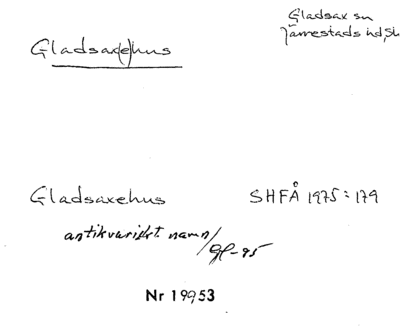 Gladsax sn
Järrestads hd, Sk
Gladsax(e)hus
Gladsaxehus SHFÅ 1975:179
antikvariskt namn/GP-95
Nr 19953